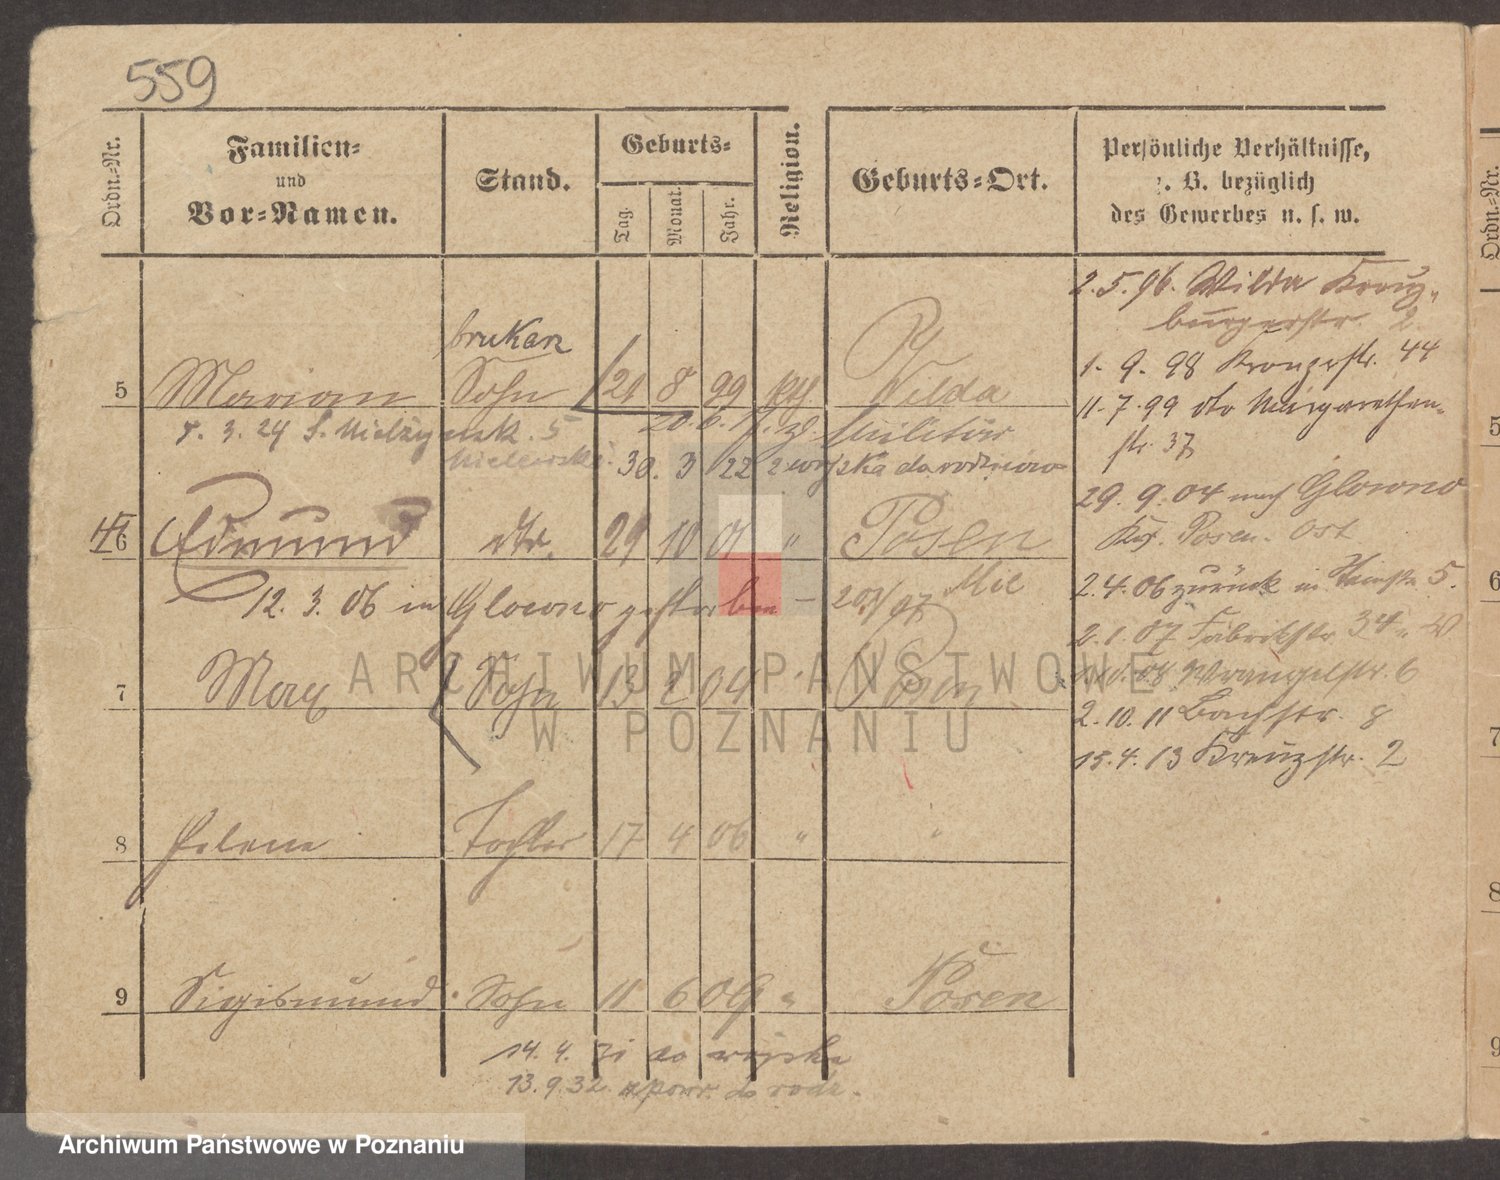 559
Ordn.-Nr.
Familien-
und
Vor-Namen.
Stand.
Geburts-
Tag.
Monat.
Jahr.
Religion.
Geburts-Ort.
Persönliche Verhältnisse,
z. B. bezüglich
des Gewerbes u. s. w.
2.5.96. Wilda Kreuz-
burgerstr. 2
brukarz
5 Marian Sohn 21 8 99 kth Wilda
1. 9. 98 Kronprstr. 44
11.7.99 dto Margarethen-
str. 37
5. 3. 24 f. 5 20.6.17. z. Militär
30. 3 22 z wojska do rodziców
29. 9. 04 nach Glowno
Krs. Posen. Ost
6 Edmund dto. 29 10 01 " Posen
12. 3. 06 in Glowno gestorben - 201/07 Mil
2.4.06 zurück in 5.
2.1.07 Fabrikstr. 34
7 Max Sohn 13 2 04 Posen
08 Wrangelstr. 6
2.10.11 Bachstr. 8
15.4.13 Kreuzstr. 2
8 Helene Tochter 17 4 06 " "
9 Sigismund Sohn 11 6 09 " Posen
14. 4. 31 do wojska
13.9.32 z powr. do rodz.
ARCHIWUM PAŃSTWOWE
W POZNANIU
Archiwum Państwowe w Poznaniu
Ordn.-Nr.
5
6
7
8
9